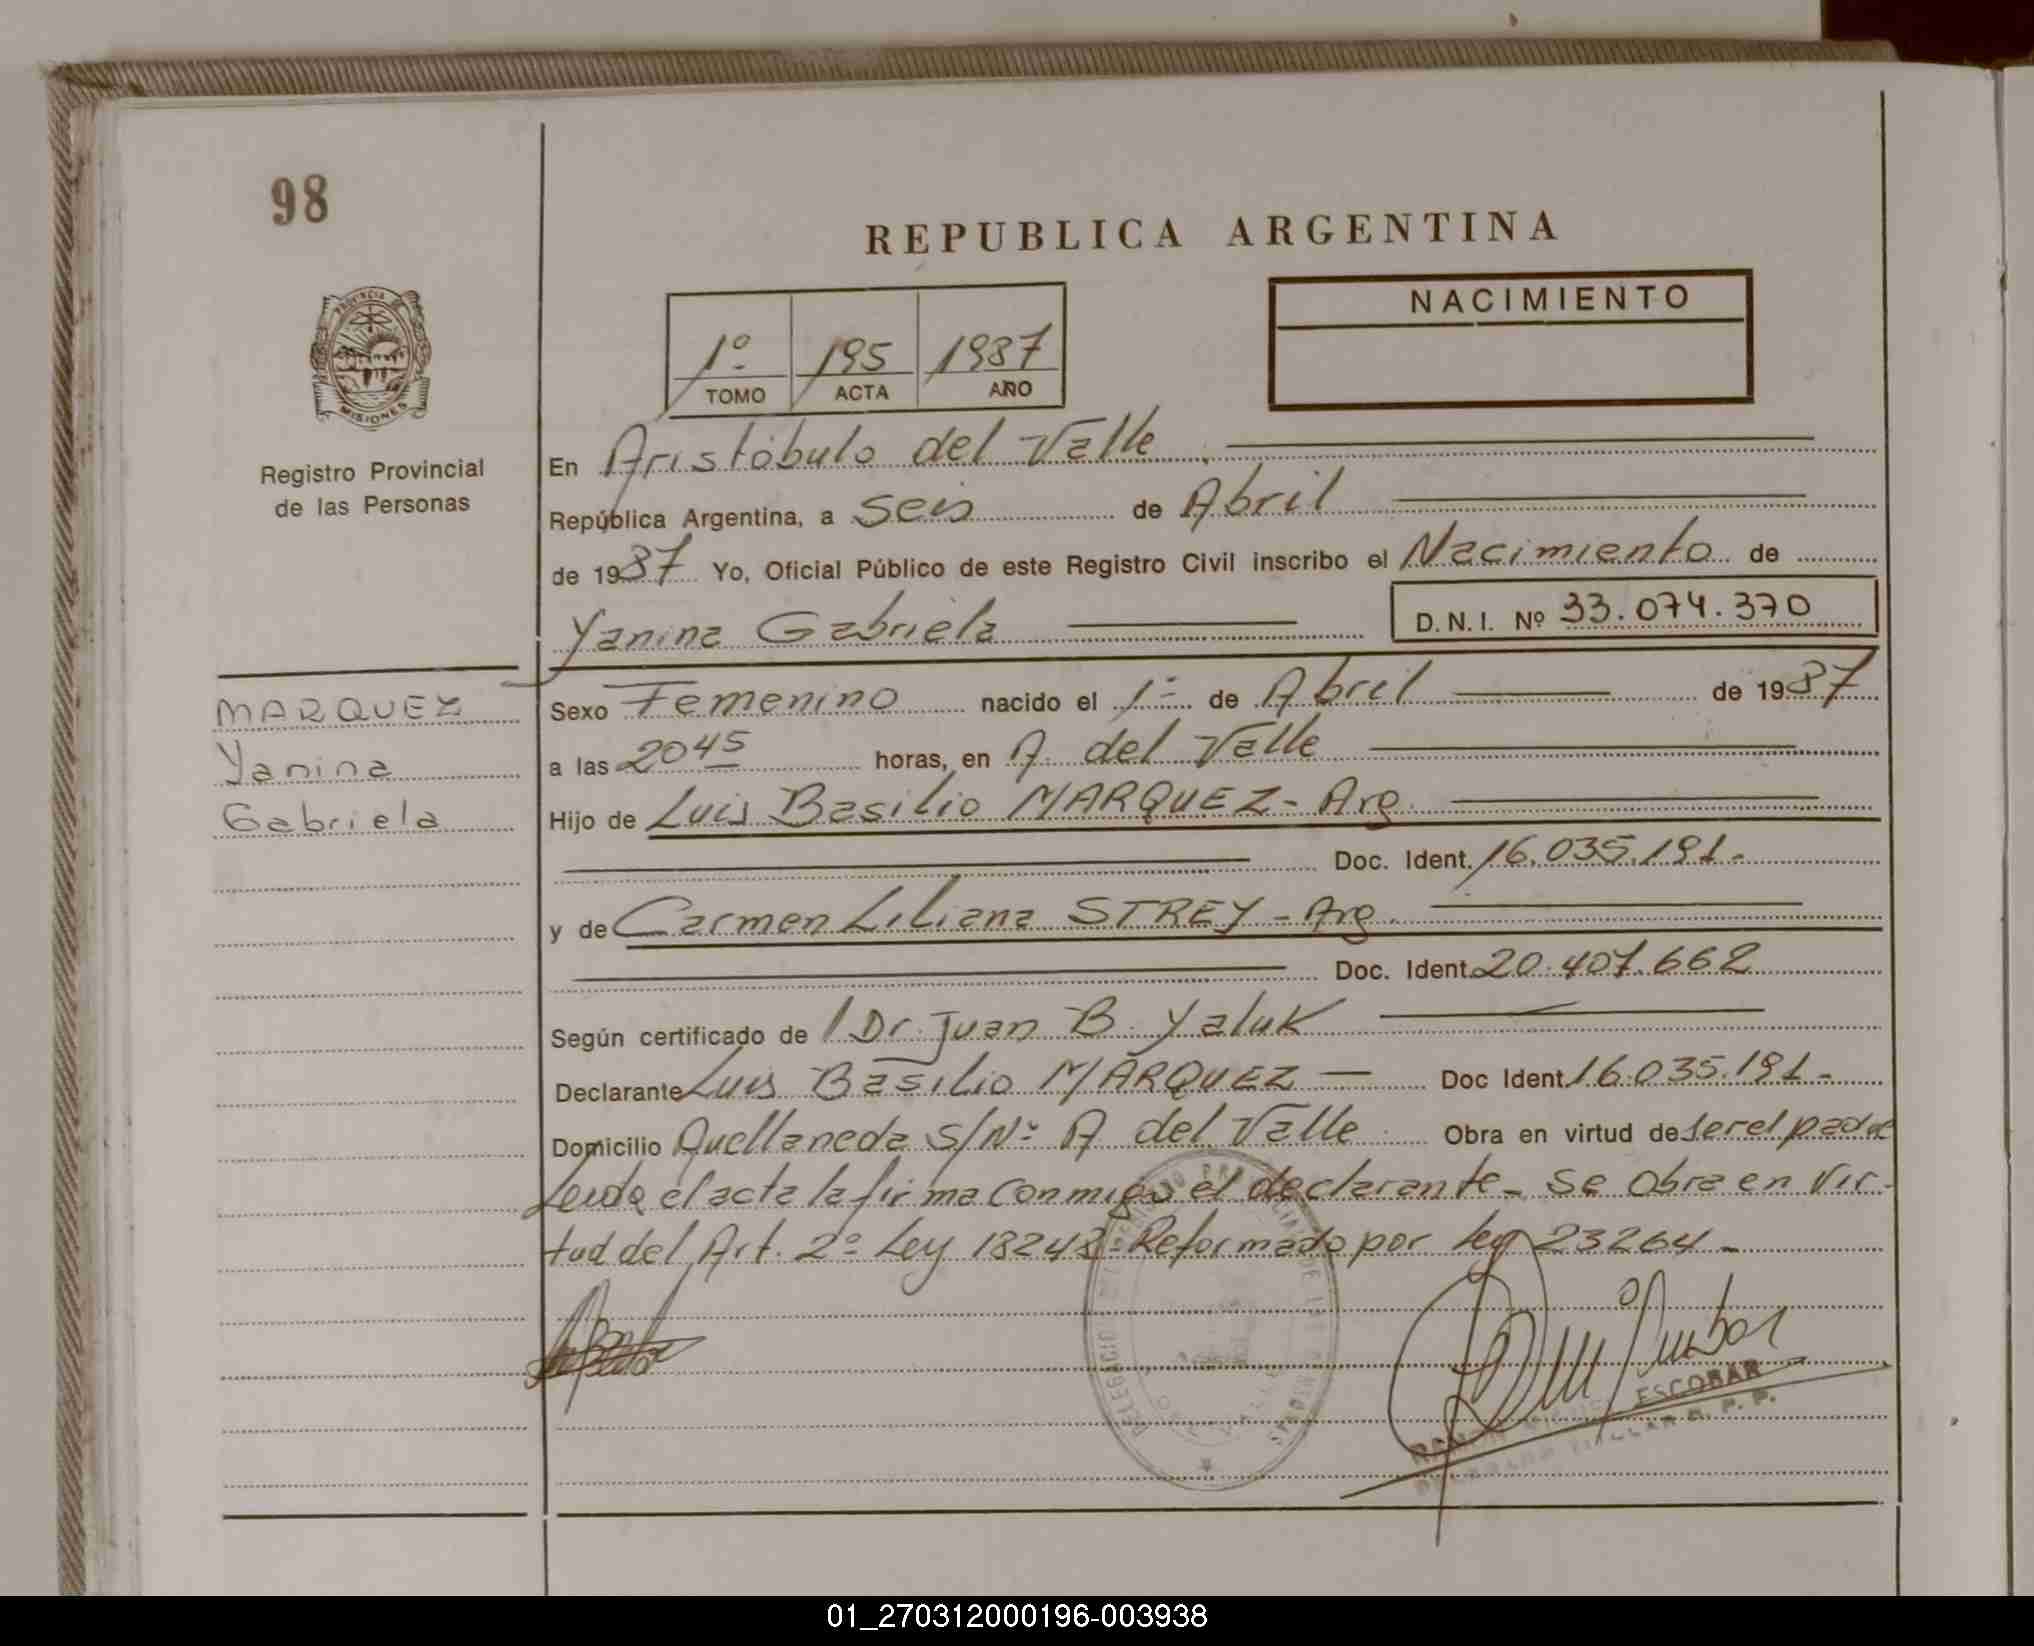 98
REPUBLICA ARGENTINA
PROVINCIA DE
MISIONES
Registro Provincial
de las Personas
1º 195 1987
TOMO ACTA AÑO
NACIMIENTO
En Aristóbulo del Valle
República Argentina, a seis de Abril
de 1987 Yo, Oficial Público de este Registro Civil inscribo el Nacimiento de
Yanina Gabriela D.N.I. Nº 33.074.370
MARQUEZ
Yanina
Gabriela
Sexo Femenino nacido el 1º de Abril de 1987
a las 2045 horas, en A. del Valle
Hijo de Luis Basilio MARQUEZ - Arg.
Doc. Ident. 16.035.191.-
y de Carmen Liliana STREY - Arg.
Doc. Ident. 20.407.662
Según certificado de Dr. Juan B. Yaluk
Declarante Luis Basilio MARQUEZ — Doc Ident. 16.035.191.-
Domicilio Avellaneda S/Nº A. del Valle Obra en virtud de ser el padre
Leida el acta la firma conmigo el declarante - Se obra en vir-
tud del Art. 2º Ley 18248 - Reformado por ley 23264 -
ESCOBAR
R. P. P.
01_270312000196-003938